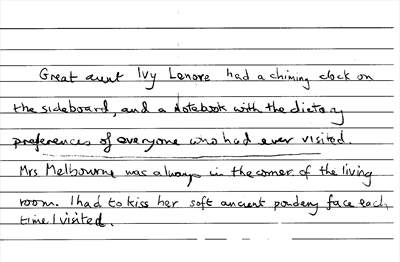 Great aunt Ivy Lenore had a chiming clock on
the sideboard, and a notebook with the dietary
preferences of everyone who had ever visited.
Mrs Melbourne was always in the corner of the living
room. I had to kiss her soft ancient powdery face each
time I visited.